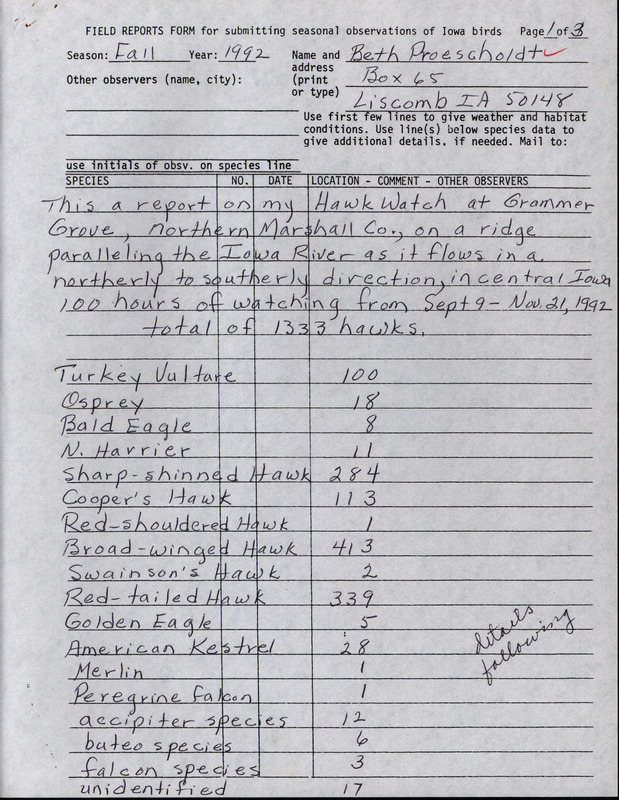 FIELD REPORTS FORM for submitting seasonal observations of Iowa birds Page 1 of 3
Season: Fall Year: 1992 Name and Beth Proescholdt
address
Other observers (name, city): (print Box 65
or type)
Liscomb IA 50148
Use first few lines to give weather and habitat
conditions. Use line(s) below species data to
give additional details, if needed. Mail to:
use initials of obsv. on species line
SPECIES NO. DATE LOCATION - COMMENT - OTHER OBSERVERS
This a report on my Hawk Watch at Grammer
Grove, northern Marshall Co., on a ridge
paralleling the Iowa River as it flows in a
northerly to southerly direction, in central Iowa
100 hours of watching from Sept 9 - Nov. 21, 1992
total of 1333 hawks.
Turkey Vulture 100
Osprey 18
Bald Eagle 8
N. Harrier 11
Sharp-shinned Hawk 284
Cooper's Hawk 113
Red-shouldered Hawk 1
Broad-winged Hawk 413
Swainson's Hawk 2
Red-tailed Hawk 339
Golden Eagle 5
American Kestrel 28
details
following
Merlin 1
Peregrine falcon 1
accipiter species 12
buteo species 6
falcon species 3
unidentified 17